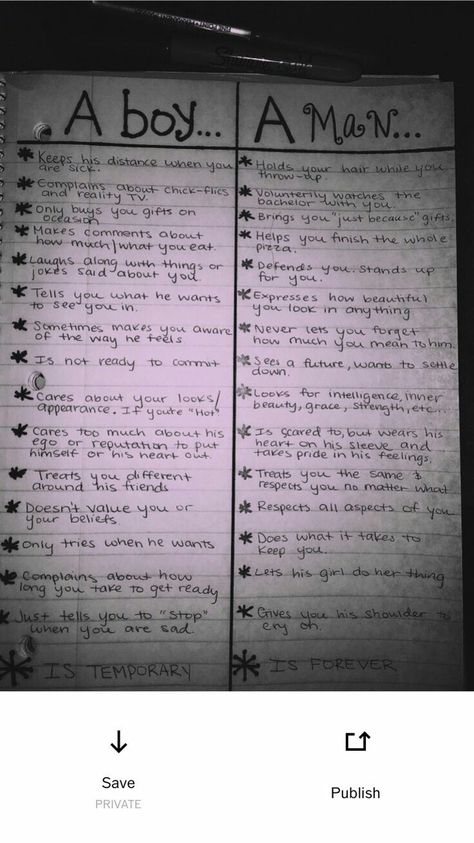 A boy...
* Keeps his distance when you
are sick.
* Complains about chick-flics
and reality TV.
* Only buys you gifts on
ocassion
* Makes comments about
how much/what you eat.
* Laughs along with things or
jokes said about you
* Tells you what he wants
to see you in.
* Sometimes makes you aware
of the way he feels
* Is not ready to commit
* Cares about your looks/
appearance. If you're "Hot"
* Cares too much about his
ego or reputation to put
himself or his heart out
* Treats you different
around his friends
* Doesn't value you or
your beliefs
* Only tries when he wants
* Complains about how
long you take to get ready
* Just tells you to "stop"
when you are sad
* IS TEMPORARY
A MaN...
* Holds your hair while you
throw-up
* Volunterily watches the
bachelor with you.
* Brings you "just because" gifts
* Helps you finish the whole
pizza.
* Defends you. Stands up
for you.
* Expresses how beautiful
you look in anything
* Never lets you forget
how much you mean to him.
* Sees a future, wants to settle
down.
* Looks for intelligence, inner
beauty, grace, strength, etc...
* Is scared to, but wears his
heart on his sleeve and
takes pride in his feelings.
* Treats you the same &
respects you no matter what
* Respects all aspects of you
* Does what it takes to
keep you.
* Lets his girl do her thing
* Gives you his shoulder to
cry on.
* IS FOREVER
Save
PRIVATE
Publish